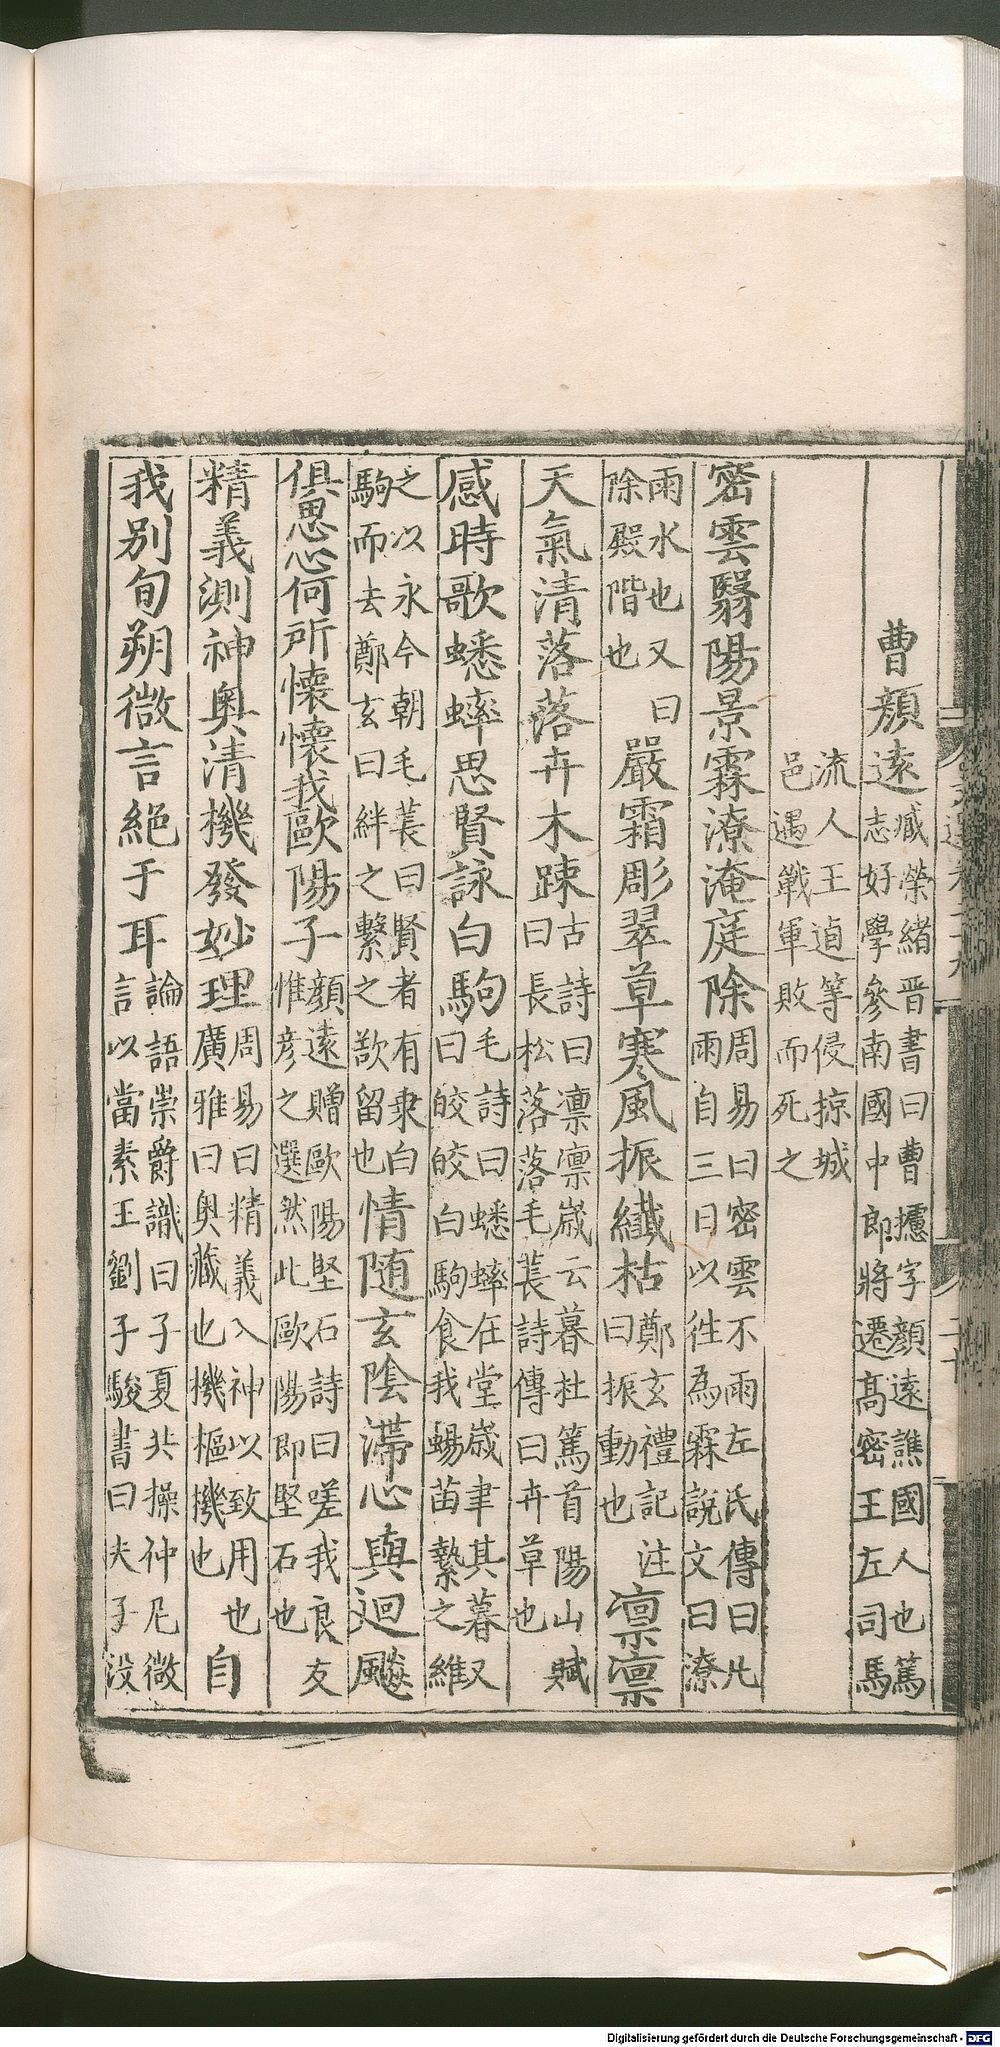 曹顏遠臧榮緒晉書曰曹攄字顏遠譙國人也篤
志好學參南國中郎將遷高密王左司馬
流人王逌等侵掠城
邑遇戰軍敗而死之
密雲翳陽景霖潦淹庭除周易曰密雲不雨左氏傳曰凡
雨自三日以徃為霖說文曰潦
雨水也又曰
除殿階也
嚴霜彫翠草寒風振纖枯鄭玄禮記注
曰振動也
凛凛
天氣清落落卉木踈古詩曰凛凛歲云暮杜篤首陽山賦
曰長松落落毛萇詩傳曰卉草也
感時歌蟋蟀思賢詠白駒毛詩曰蟋蟀在堂歲聿其暮又
曰皎皎白駒食我場苗縶之維
之以永今朝毛萇曰賢者有乘白
駒而去鄭玄曰絆之繫之歆留也
情随玄陰滯心與迴飈
俱思心何所懷懷我歐陽子顏遠贈歐陽堅石詩曰嗟我良友
惟彦之選然此歐陽即堅石也
精義測神奥清機發妙理周易曰精義入神以致用也
廣雅曰奥藏也機樞機也
自
我別旬朔微言絕于耳論語崇爵讖曰子夏共操仲尼微
言以當素王劉子駿書曰夫子没
Digitalisierung gefördert durch die Deutsche Forschungsgemeinschaft - DFG